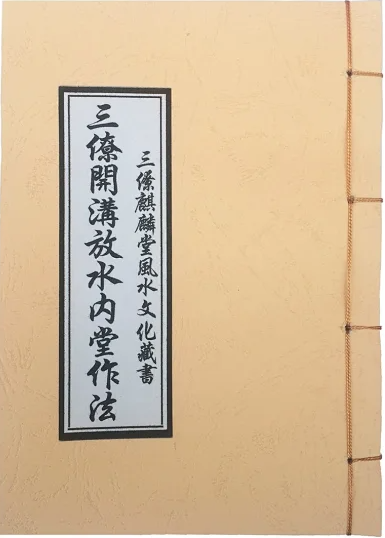 三僚麒麟堂風水文化藏書
三僚開溝放水內堂作法